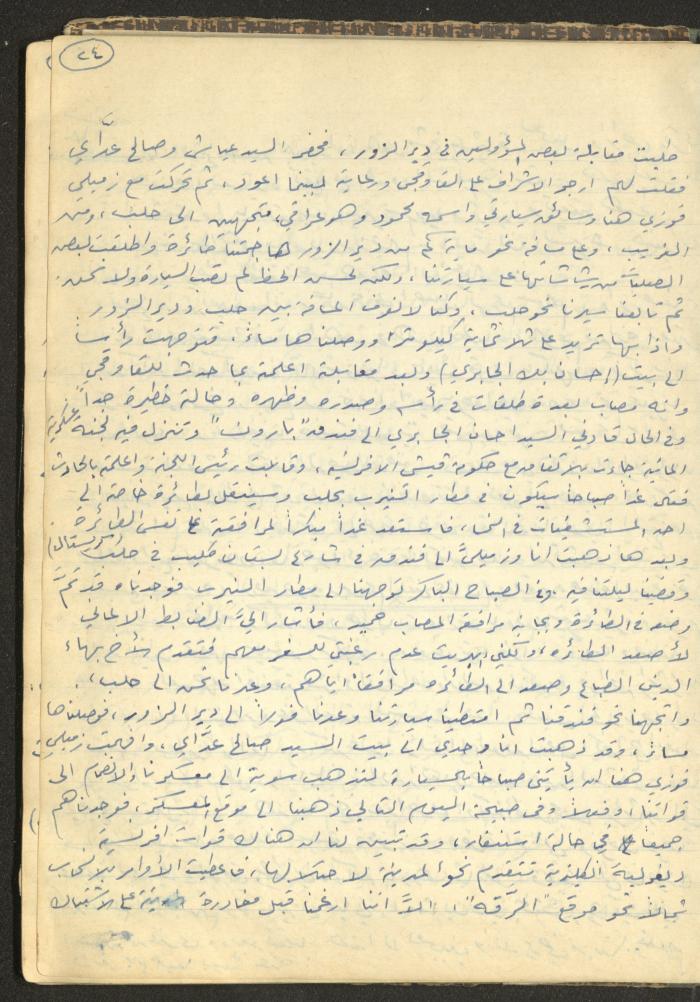 ٢٤
طلبت مقابلة بعض المسؤولين في دير الزور، فحضر السيد عياش وصالح عدّاي
فقلت لهم ارجو الاشراف على القاوقجي ورعايته لبينما اعود، ثم تحركت مع زميلي
فوزي هنا وسائق سيارتي واسمه محمود وهو عراقي، متجهين الى حلب، ومن
الغريب، وعلى مسافة نحو ماية كم من دير الزور هاجمتنا طائرة واطلقت بعض
الصليات من رشاشاتها على سيارتنا، ولكن لحسن الحظ لم تصب السيارة ولا نحن.
ثم تابعنا سيرنا نحو حلب، وكنا لا نعرف المسافة بين حلب ودير الزور
واذا بها تزيد على ثلاثماية كيلومتراً ووصلناها مساءً، فتوجهت رأساً
الى بيت (احسان بك الجابري) وبعد مقابلة اعلمته بما حدث للقاوقجي
وانه مصاب بعدة طلقات في رأسه وصدره وظهره وحالته خطيرة جداً
وفي الحال قادني السيد احسان الجابري الى فندق "بارون" وتنزل فيه لجنة عسكرية
المانية جاءت بالاتفاق مع حكومة فيشي الافرنسية، وقابلت رئيس اللجنة واعلمته بالحادث
فقال غداً صباحاً سيكون في مطار النيرب بحلب وسينقل بطائرة خاصة الى
احد المستشفيات في النمسا، فاستعد غداً مبكراً لمرافقته على نفس الطائرة
وبعدها ذهبت انا وزميليَّ الى فندق في شارع بستان كليب في حلب
وقضينا ليلتنا فيه. وفي الصباح الباكر توجهنا الى مطار النيرب فوجدناه قد تمَّ
وضعه في الطائرة وبجانبه مرافقه المصاب حميد، فأشار اليَّ الضابط الالماني
لأصعد الطائرة، ولكنني ابديت عدم رغبتي للسفر معهم فتقدم الأخ بهاء
الدين الطباع وصعد الى الطائرة مرافقاً اياهم، وعدنا نحن الى حلب،
واتجهنا نحو فندقنا ثم امتطينا سيارتنا وعدنا فوراً الى دير الزور، فوصلناها
مساءً، وقد ذهبت انا وحدي الى بيت السيد صالح عدَّاي، وافهمت زميلي
فوزي هنا ان يأتيني صباحاً بالسيارة لنذهب سوية الى معسكرنا والانضمام الى
قواتنا، وفعلاً وفي صبيحة اليوم التالي ذهبنا الى موقع المعسكر، فوجدناهم
جميعاً في حالة استنفار، وقد تبين لنا ان هناك قوات افرنسية
ديغولية انكليزية تتقدم نحو المدينة لاحتلالها، فاعطيت الأوامر بالانسحاب
شمالاً نحو موقع "الرّقه"، الاَّ اننا ارغمنا قبل مغادرة المدينة على الاشتباك